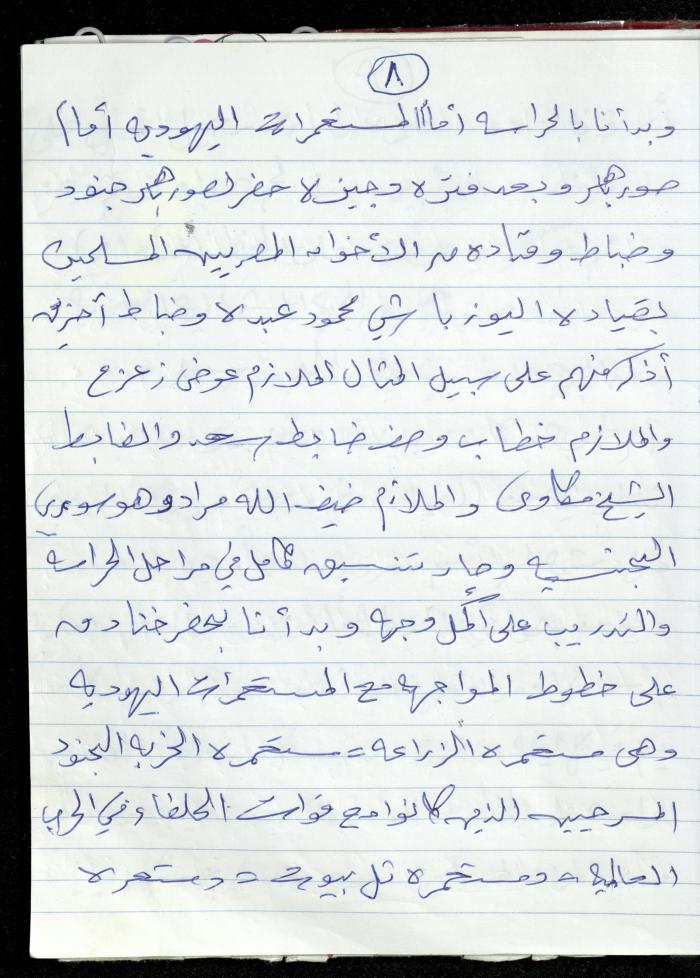 ٨
وبدأنا بالحراسه أمام المستعمرات اليهوديه أمام
صور باهر وبعد فتره وجيزه حضر لصور باهر جنود
وضباط وقاده من الأخوان المصريين المسلمين
بقياده اليوزباشي محمود عبده وضباط آخرين
أذكر منهم على سبيل المثال الملازم عوض زعزع
والملازم خطاب وصف ضابط سعد والضابط
الشيخ مكاوى والملازم ضيف الله مراد وهو سوري
الجنسيه وصار تنسيق كامل في مراحل الحراسه
والتدريب على أكمل وجه وبدأنا بحفر خنادق
على خطوط المواجهه مع المستعمرات اليهوديه
وهى مستعمره الزراعه = مستعمره الخربه الجنود
المسرحيين الذين كانوا مع قوات الحلفاء في الحرب
العالميه = ومستعمره تل بيوت = ومستعمره